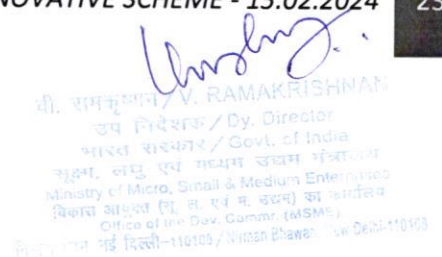 NOVATIVE SCHEME - 15.02.2024
वी. रामकृष्णन / V. RAMAKRISHNAN
उप निदेशक / Dy. Director
भारत सरकार / Govt. of India
सूक्ष्म, लघु एवं मध्यम उद्यम मंत्रालय
Ministry of Micro, Small & Medium Enterprises
विकास आयुक्त (सू. ल. एवं म. उद्यम) का कार्यालय
Office of the Dev. Commr. (MSME)
नई दिल्ली-110108 / Nirman Bhawan, New Delhi-110108